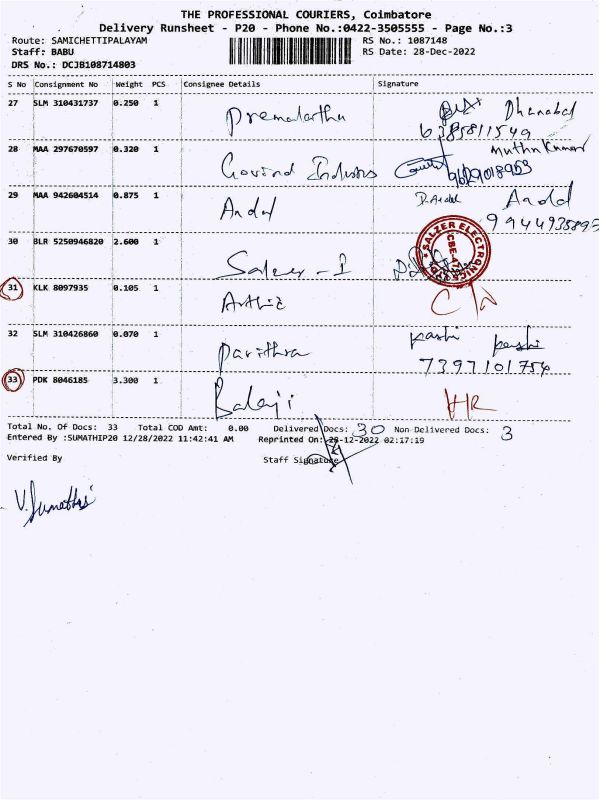 THE PROFESSIONAL COURIERS, Coimbatore
Delivery Runsheet - P20 - Phone No.:0422-3505555 - Page No.:3
Route: SAMICHETTIPALAYAM RS No.: 1087148
Staff: BABU RS Date: 28-Dec-2022
DRS No.: DCJB108714803
S No Consignment No Weight PCS Consignee Details Signature
27 SLM 310431737 0.250 1 Dhanabal
6385811549
28 MAA 297670597 0.320 1 Govind Muthu Kumar
9629018953
29 MAA 942604514 0.875 1 Andal D.Andal Andal
9944935895
30 BLR 5250946820 2.600 1 Salzer - I SALZER ELECTRONICS
31 KLK 8097935 0.105 1
32 SLM 310426860 0.070 1 Pavithra
7397101754
33 PDK 8046185 3.300 1 Balaji HR
Total No. Of Docs: 33 Total COD Amt: 0.00 Delivered Docs: 30 Non Delivered Docs: 3
Entered By :SUMATHIP20 12/28/2022 11:42:41 AM Reprinted On: 28-12-2022 02:17:19
Verified By Staff Signature
V. Sumathi